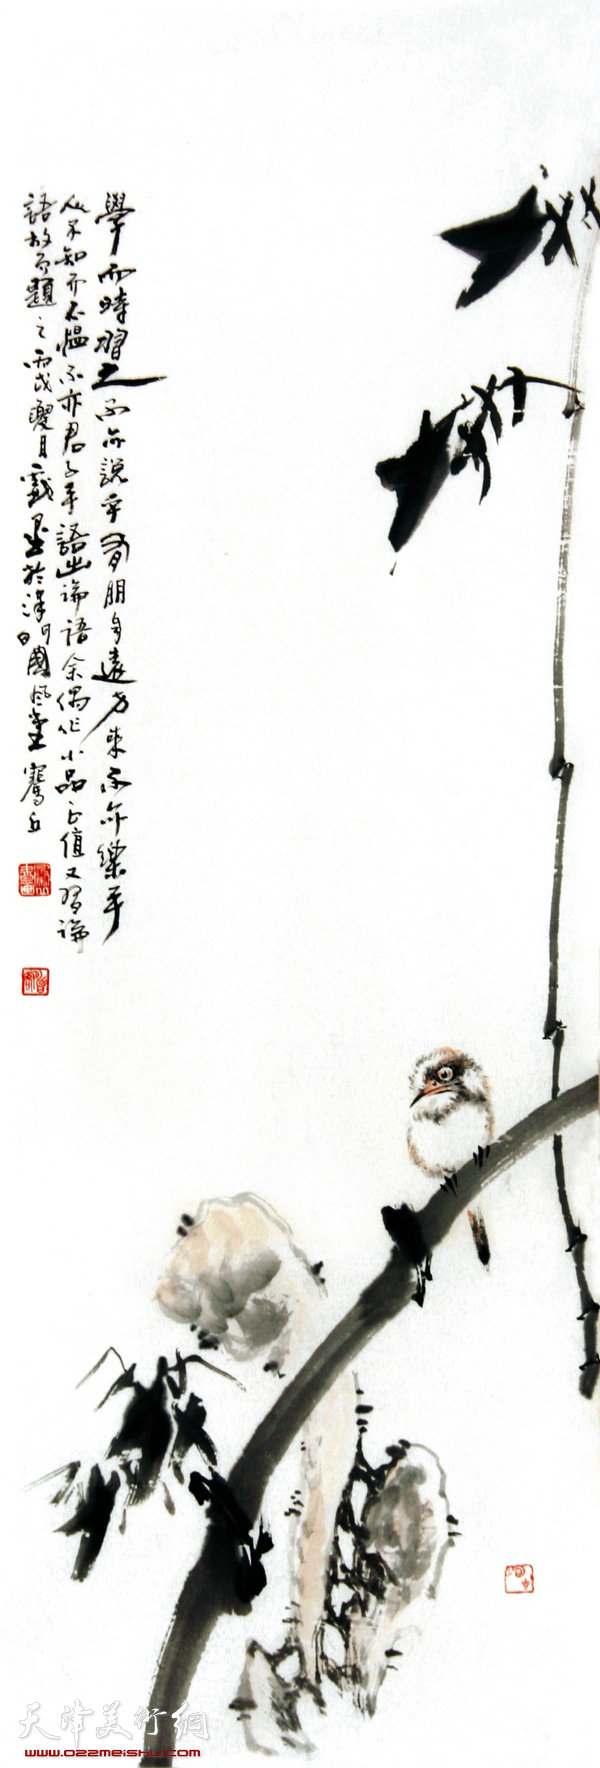 學而時習之不亦說乎有朋自遠方來不亦樂乎
人不知而不慍不亦君子乎語出論語余偶作小品正值又習論
語故而題之丙戌夏月戲墨於津門國風堂騫丘
天津美術網
www.022meishu.com